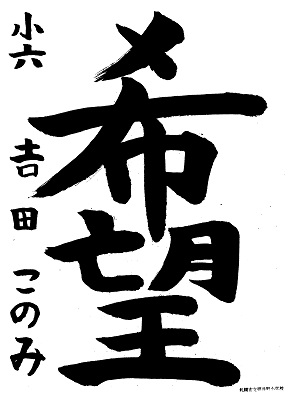 希望
小六 吉田 このみ